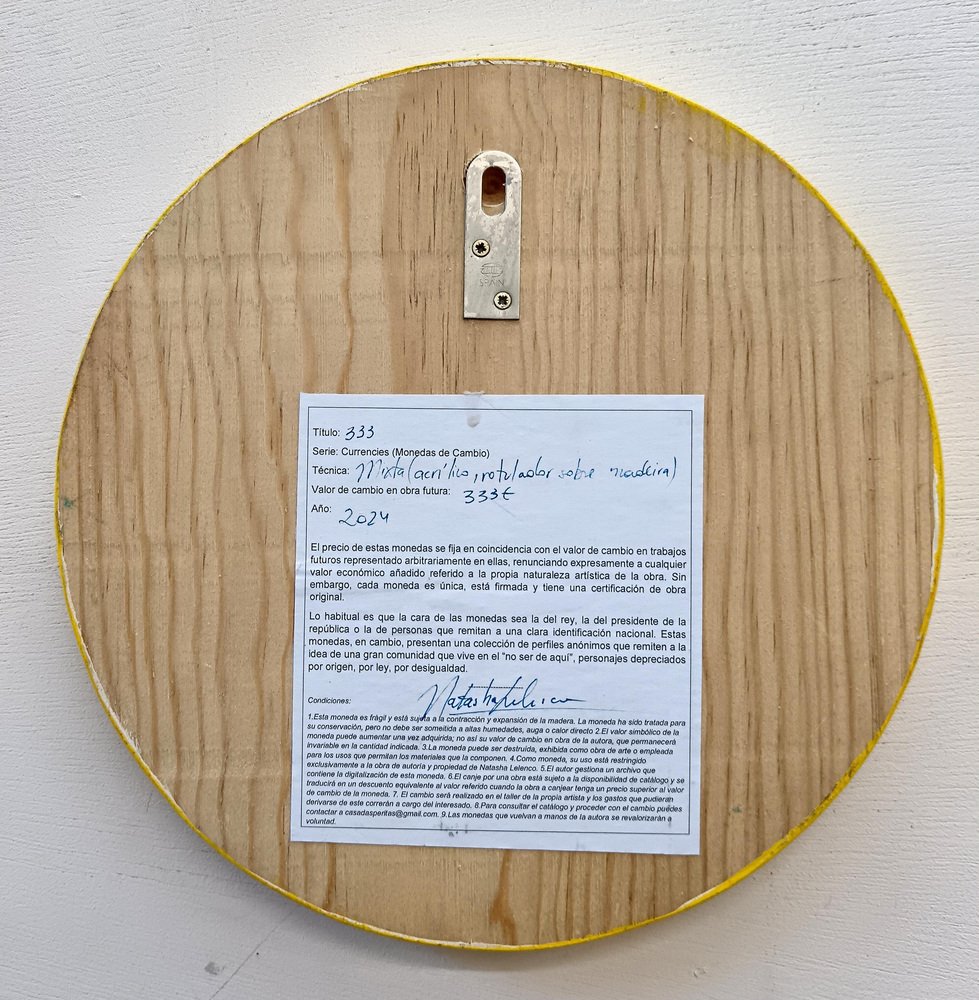 SPAIN
Título: 333
Serie: Currencies (Monedas de Cambio)
Técnica: Mixta (acrílico, rotulador sobre madeira)
Valor de cambio en obra futura: 333€
Año: 2024
El precio de estas monedas se fija en coincidencia con el valor de cambio en trabajos
futuros representado arbitrariamente en ellas, renunciando expresamente a cualquier
valor económico añadido referido a la propia naturaleza artística de la obra. Sin
embargo, cada moneda es única, está firmada y tiene una certificación de obra
original.
Lo habitual es que la cara de las monedas sea la del rey, la del presidente de la
república o la de personas que remitan a una clara identificación nacional. Estas
monedas, en cambio, presentan una colección de perfiles anónimos que remiten a la
idea de una gran comunidad que vive en el "no ser de aquí", personajes depreciados
por origen, por ley, por desigualdad.
Natasha Lelenco
Condiciones:
1.Esta moneda es frágil y está sujeta a la contracción y expansión de la madera. La moneda ha sido tratada para
su conservación, pero no debe ser someitida a altas humedades, auga o calor directo 2.El valor simbólico de la
moneda puede aumentar una vez adquirida; no así su valor de cambio en obra de la autora, que permanecerá
invariable en la cantidad indicada. 3.La moneda puede ser destruída, exhibida como obra de arte o empleada
para los usos que permitan los materiales que la componen. 4.Como moneda, su uso está restringido
exclusivamente a la obra de autoría y propiedad de Natasha Lelenco. 5.El autor gestiona un archivo que
contiene la digitalización de esta moneda. 6.El canje por una obra está sujeto a la disponibilidad de catálogo y se
traducirá en un descuento equivalente al valor referido cuando la obra a canjear tenga un precio superior al valor
de cambio de la moneda. 7. El cambio será realizado en el taller de la propia artista y los gastos que pudieran
derivarse de este correrán a cargo del interesado. 8.Para consultar el catálogo y proceder con el cambio puedes
contactar a casadasperitas@gmail.com. 9.Las monedas que vuelvan a manos de la autora se revalorizarán a
voluntad.